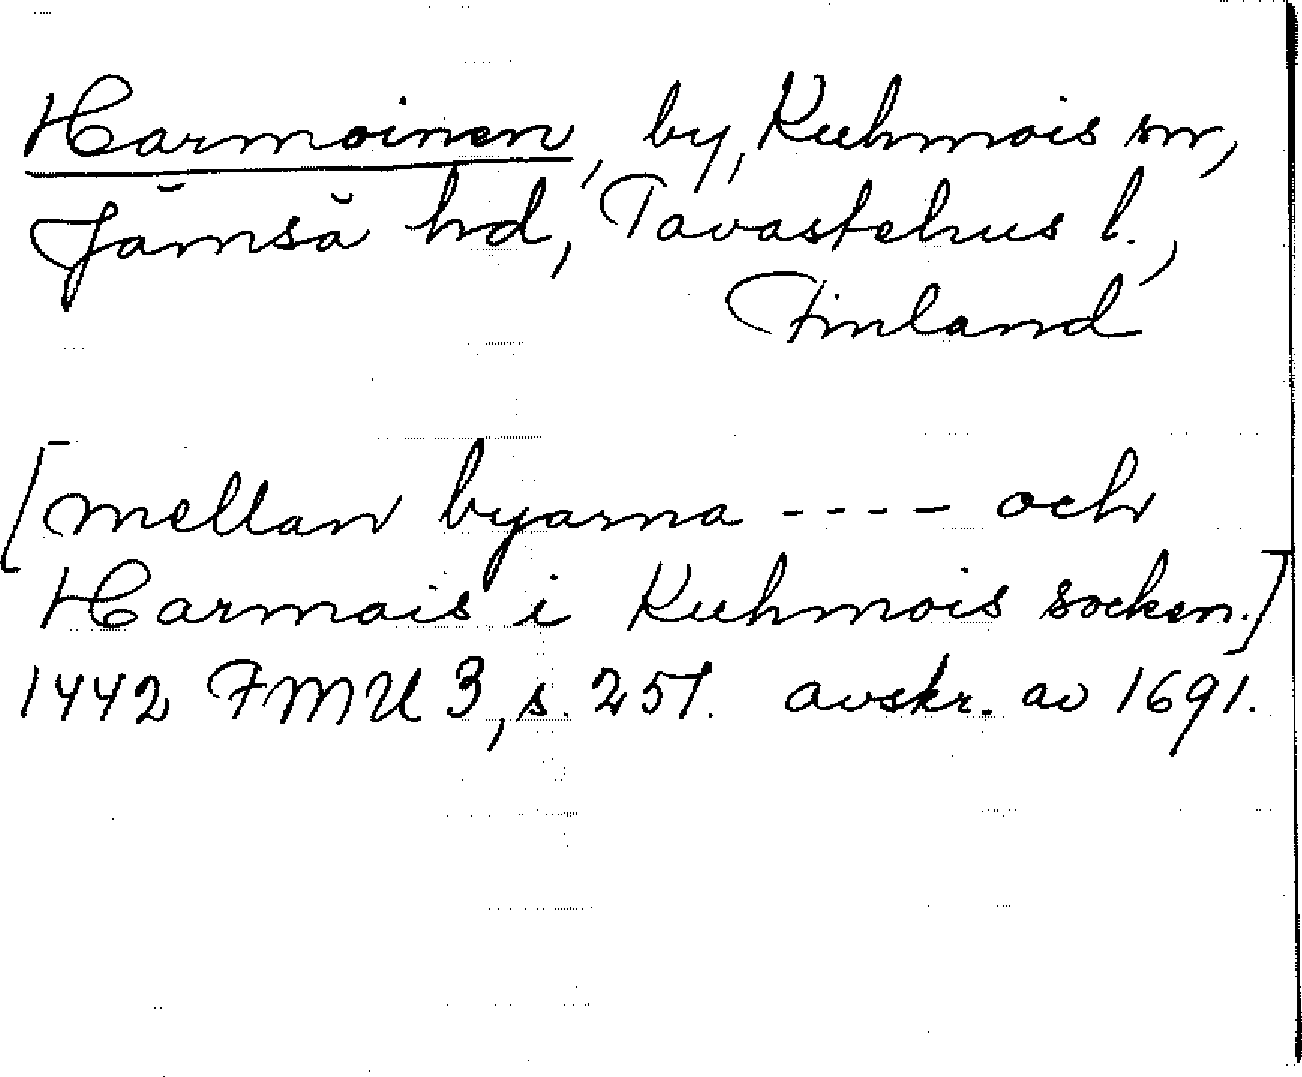 Harmoinen, by, Kuhmois sn,
Jämsä hd, Tavastehus l.,
Finland
[mellan byarna ---- och
Harmois i Kuhmois socken.]
1442 FMU 3, s. 257. avskr. av 1691.